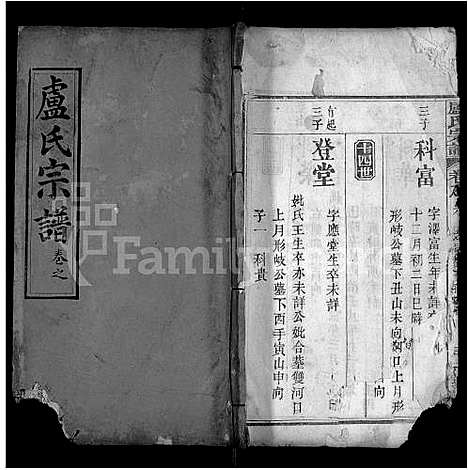 盧氏宗譜
卷之
盧氏宗譜
三子
科富
字澤富生年未詳
十二月初二日巳時
形岐公墓下丑山未向
河口上月形
向
十四世
有起
三子
登堂
字應堂生卒未詳
妣氏王生卒亦未詳公妣合墓雙河口
上月形岐公墓下酉手寅山申向
子一 科貴
Family